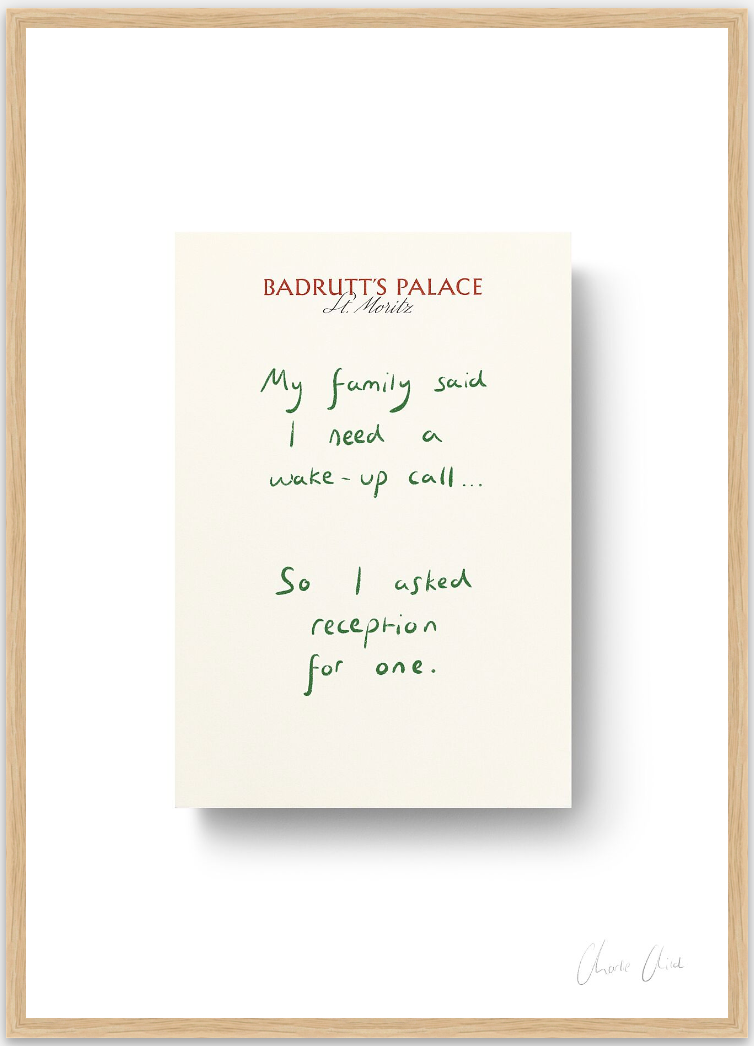 BADRUTT'S PALACE
St. Moritz
My family said
I need a
wake-up call...
So I asked
reception
for one.